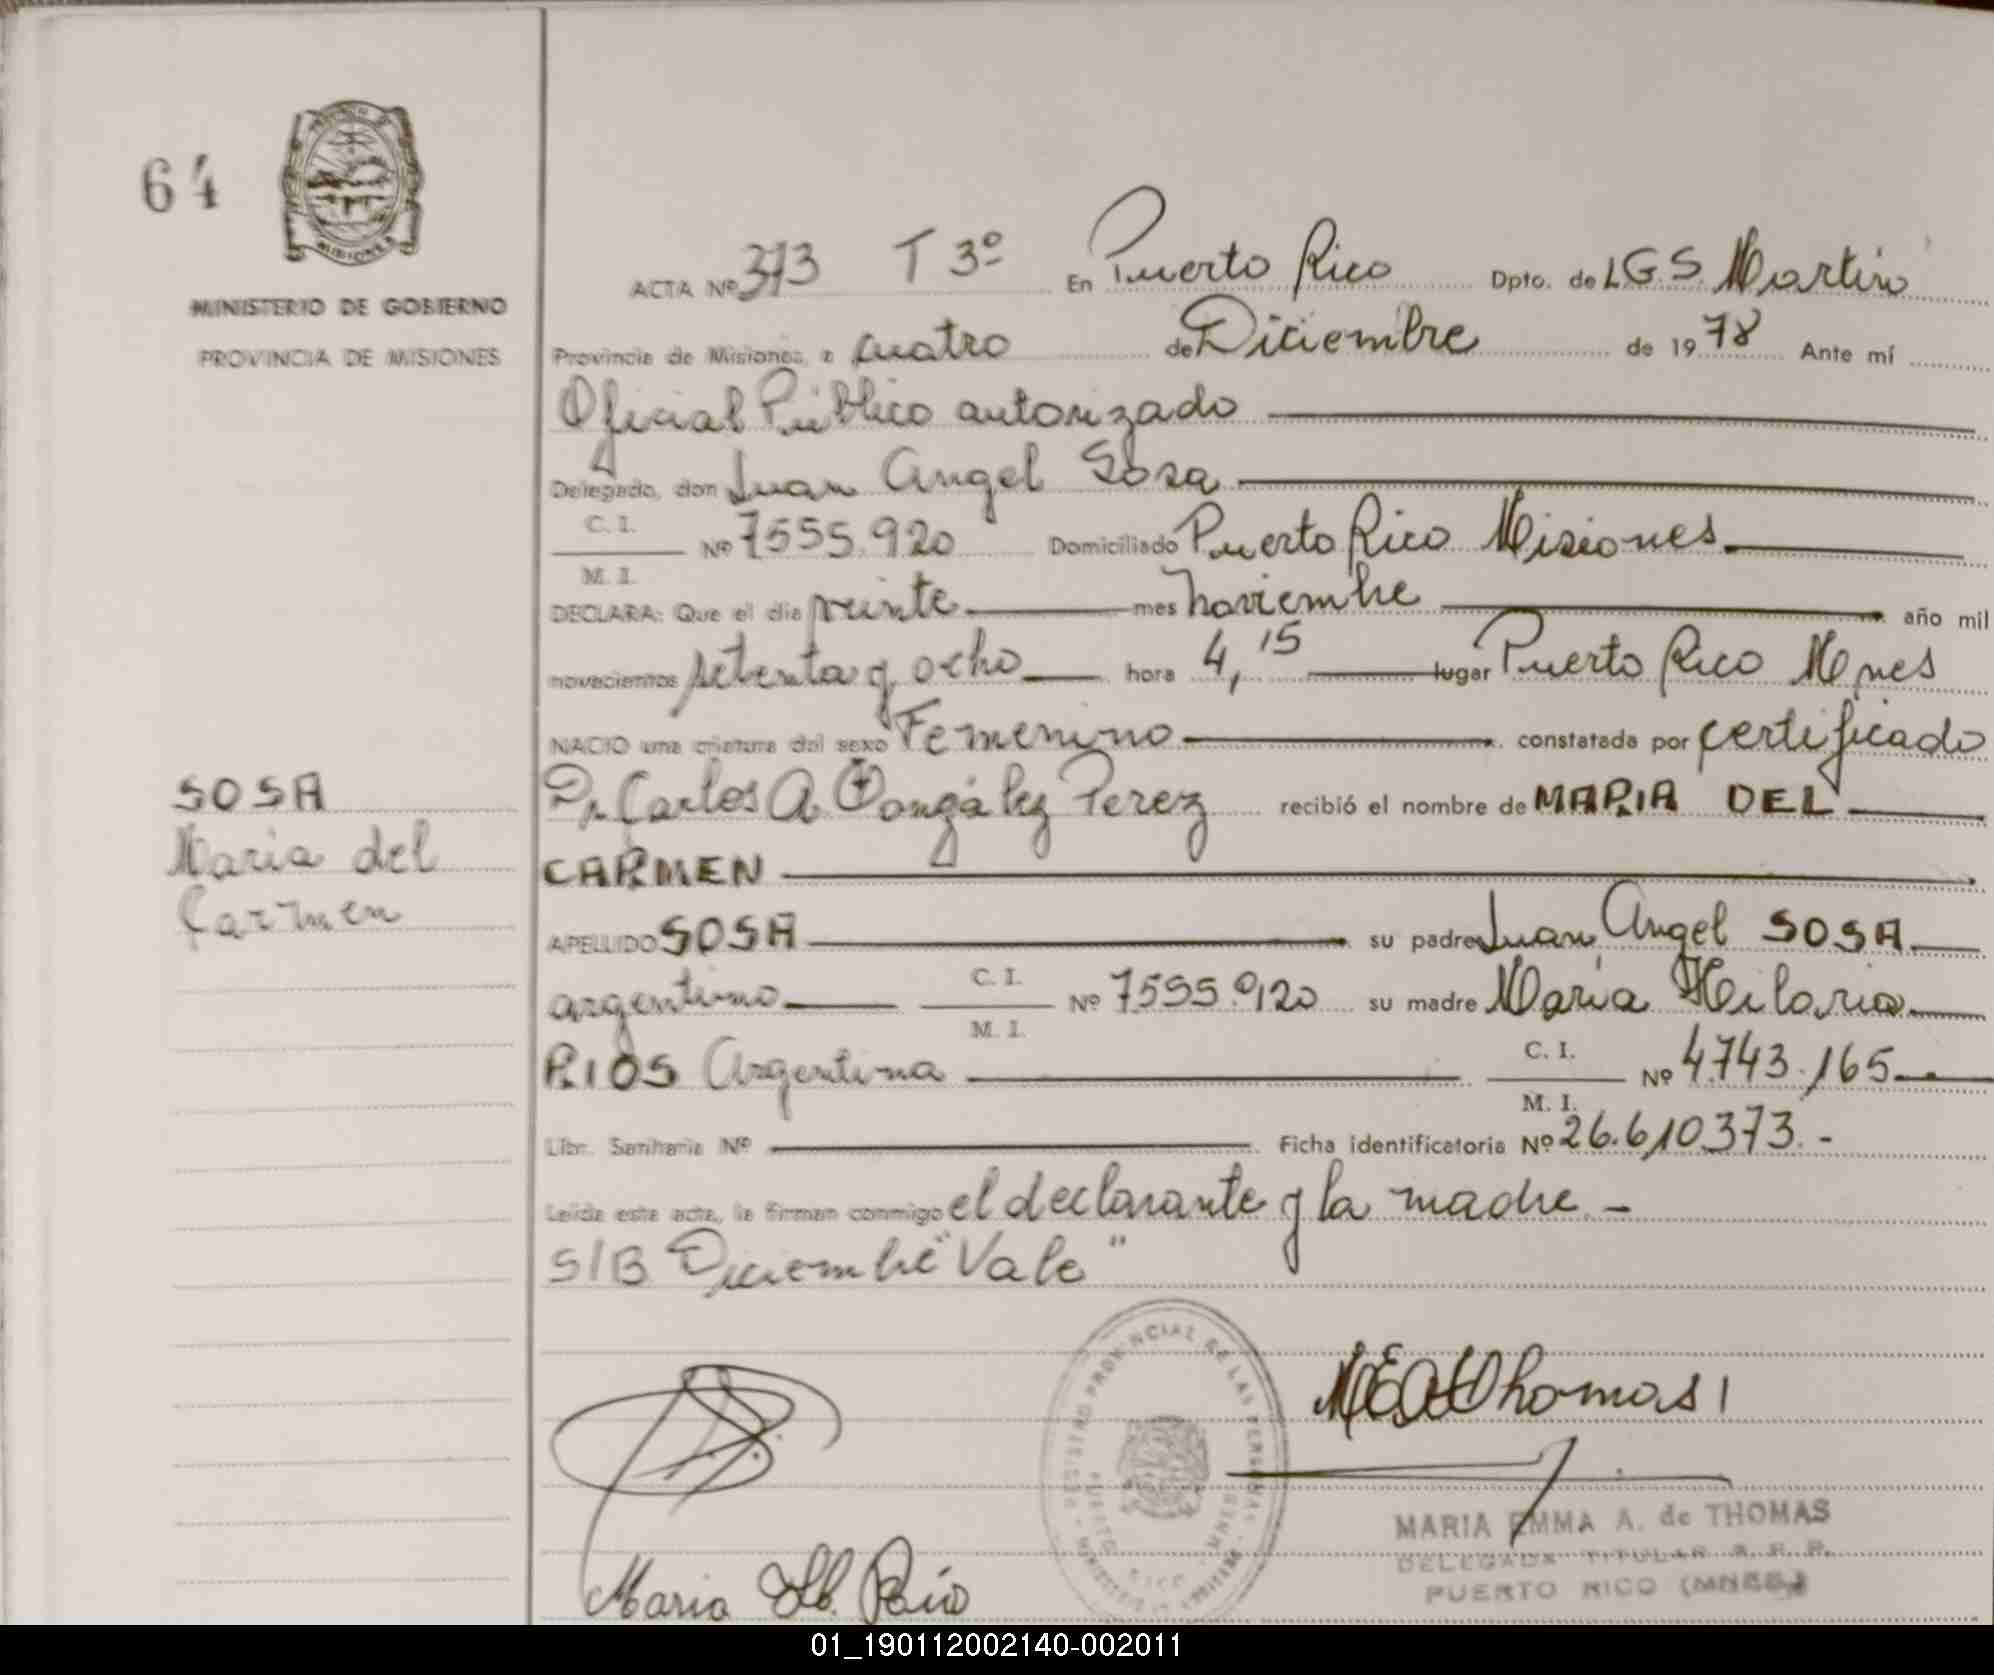 64
MINISTERIO DE GOBIERNO
PROVINCIA DE MISIONES
ACTA Nº 373 T 3º En Puerto Rico Dpto. de L.G.S. Martin
Provincia de Misiones, a cuatro de Diciembre de 1978 Ante mí
Oficial Público autorizado
Delegado, don Juan Angel Sosa
C. I.
Nº 7555.920 Domiciliado Puerto Rico Misiones
M. I.
DECLARA: Que el día veinte mes noviembre año mil
novecientos setenta y ocho hora 4,15 lugar Puerto Rico Mnes
NACIO una criatura del sexo Femenino constatada por certificado
Dr Carlos A Gongález Perez recibió el nombre de MARIA DEL
CARMEN
SOSA
Maria del
Carmen
APELLIDO SOSA su padre Juan Angel SOSA
argentino C. I. Nº 7555.920 su madre Maria Hilaria
M. I.
RIOS Argentina C. I. Nº 4.743.165
M. I.
Libr. Sanitaria Nº Ficha identificatoria Nº 26.610373.-
Leída este acta, la firman conmigo el declarante y la madre.-
S/B Diciembre "Vale"
REGISTRO PROVINCIAL DE LAS PERSONAS
PUERTO RICO MNES
M E A Thomas
MARIA EMMA A. de THOMAS
DELEGADA TITULAR R. P. P.
PUERTO RICO (MNES.)
Maria Rios
01_190112002140-002011